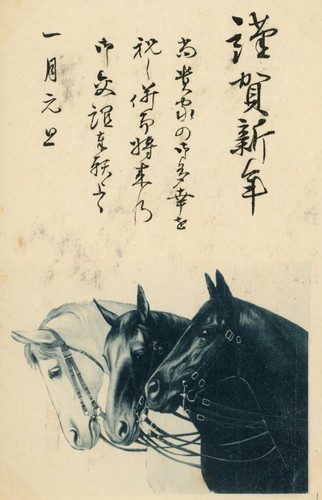 謹賀新年
尚貴家の御多幸を
祝し併而将来の
御交誼を願上候
一月元旦